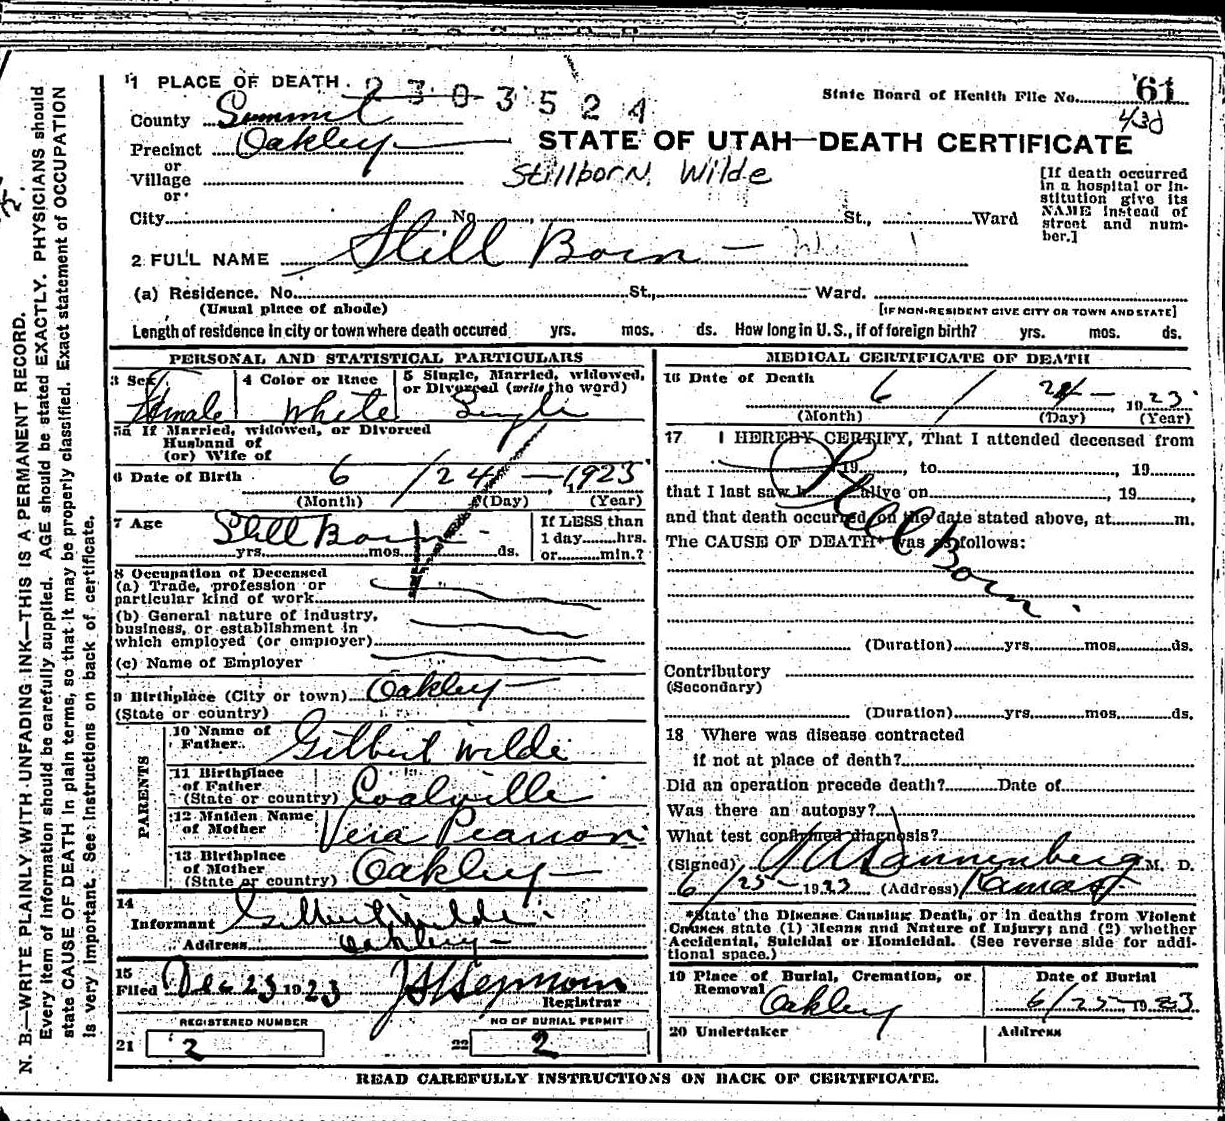 N. B.—WRITE PLAINLY WITH UNFADING INK—THIS IS A PERMANENT RECORD.
Every item of information should be carefully supplied. AGE should be stated EXACTLY. PHYSICIANS should
state CAUSE OF DEATH in plain terms, so that it may be properly classified. Exact statement of OCCUPATION
is very important. See instructions on back of certificate.
1 PLACE OF DEATH
2303524
State Board of Health File No. 61
430
County Summit
Precinct Oakley
STATE OF UTAH—DEATH CERTIFICATE
or
Village
Stillborn Wilde
or
City No. St., Ward
[If death occurred
in a hospital or in-
stitution give its
NAME instead of
street and num-
ber.]
2 FULL NAME Still Born
(a) Residence. No. St., Ward.
(Usual place of abode)
[IF NON-RESIDENT GIVE CITY OR TOWN AND STATE]
Length of residence in city or town where death occured yrs. mos. ds. How long in U. S., if of foreign birth? yrs. mos. ds.
PERSONAL AND STATISTICAL PARTICULARS
3 Sex Female
4 Color or Race White
5 Single, Married, widowed,
or Divorced (write the word)
Single
5a If Married, widowed, or Divorced
Husband of
(or) Wife of
6 Date of Birth 6 / 24 — 1923
(Month) (Day) (Year)
7 Age Still Born
yrs. mos. ds.
If LESS than
1 day hrs.
or min.?
8 Occupation of Deceased
(a) Trade, profession or
particular kind of work
(b) General nature of industry,
business, or establishment in
which employed (or employer)
(c) Name of Employer
9 Birthplace (City or town) Oakley
(State or country)
PARENTS
10 Name of
Father Gilbert Wilde
11 Birthplace
of Father
(State or country) Coalville
12 Maiden Name
of Mother Vera Pearson
13 Birthplace
of Mother
(State or country) Oakley
14
Informant Gilbert Wilde
Address Oakley
15
Filed Dec 23 1923 J S Seymour
Registrar
REGISTERED NUMBER
21 2
NO OF BURIAL PERMIT
22 2
MEDICAL CERTIFICATE OF DEATH
16 Date of Death
6 / 24 — 1923
(Month) (Day) (Year)
17 I HEREBY CERTIFY, That I attended deceased from
19 , to , 19
that I last saw h alive on , 19 ,
and that death occurred, on the date stated above, at m.
The CAUSE OF DEATH* was as follows:
Still Born
(Duration) yrs. mos. ds.
Contributory
(Secondary)
(Duration) yrs. mos. ds.
18 Where was disease contracted
if not at place of death?
Did an operation precede death? Date of
Was there an autopsy?
What test confirmed diagnosis?
(Signed) Dannenberg M. D.
6/25-1923 (Address) Kamas
*State the Disease Causing Death, or in deaths from Violent
Causes state (1) Means and Nature of Injury; and (2) whether
Accidental, Suicidal or Homicidal. (See reverse side for addi-
tional space.)
19 Place of Burial, Cremation, or
Removal Oakley
Date of Burial
6/25-1923
20 Undertaker
Address
READ CAREFULLY INSTRUCTIONS ON BACK OF CERTIFICATE.